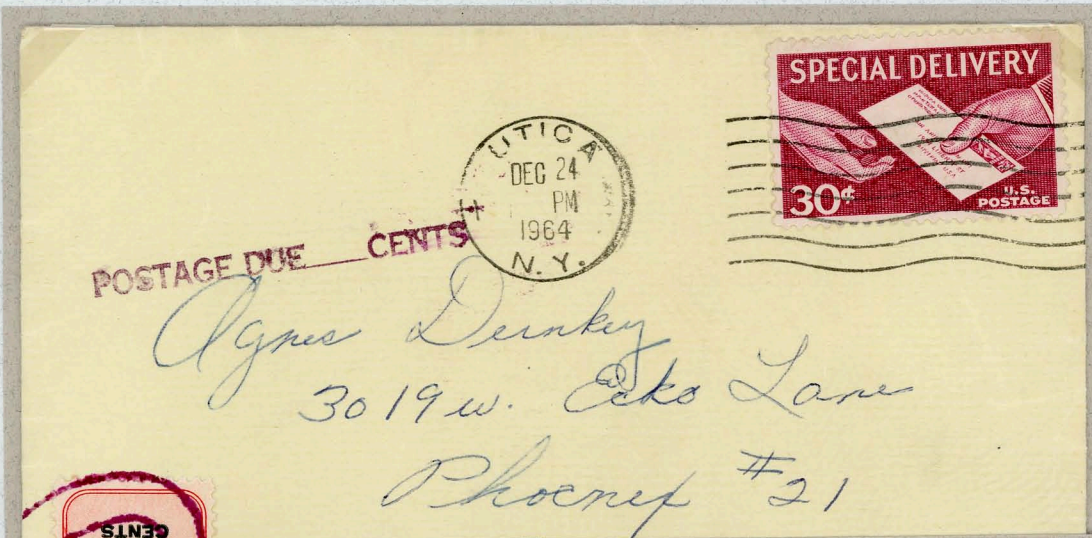 SPECIAL DELIVERY
30¢
U.S.
POSTAGE
UTICA
DEC 24
PM
1964
N.Y.
POSTAGE DUE CENTS
Agnes
3019 w. Ecko Lane
Phoenix #21
CENTS